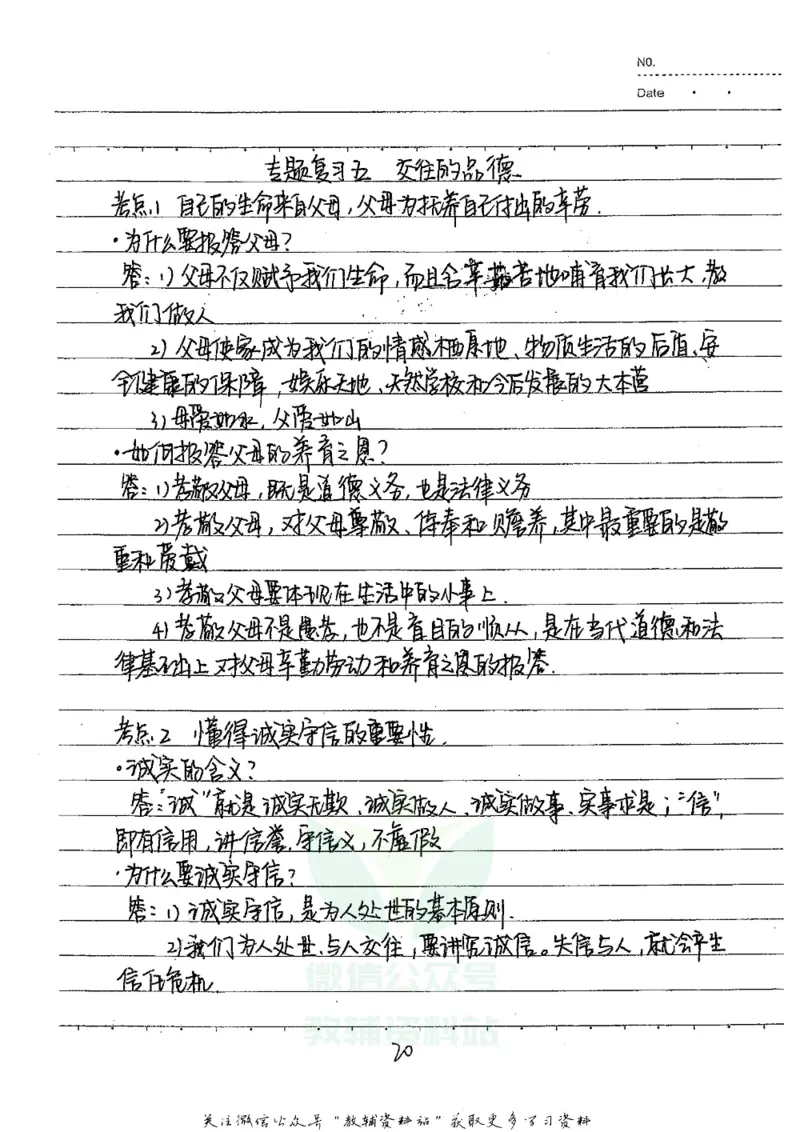 NO.
Date
专题复习五 交往的品德
考点1 自己的生命来自父母,父母为抚养自己付出的辛劳.
·为什么要报答父母?
答:1)父母不仅赋予我们生命,而且含辛茹苦地哺育我们长大,教
我们做人
2)父母使家成为我们的情感栖息地、物质生活的后盾、安
全健康的保障,娱乐天地、天然学校和今后发展的大本营
3)母爱如水,父爱如山
·如何报答父母的养育之恩?
答:1)孝敬父母,既是道德义务,也是法律义务
2)孝敬父母,对父母尊敬、侍奉和赡养,其中最重要的是敬
重和爱戴
3)孝敬父母要体现在生活中的小事上.
4)孝敬父母不是愚孝,也不是盲目的顺从,是在当代道德和法
律基础上对父母辛勤劳动和养育之恩的报答.
考点2 懂得诚实守信的重要性.
·诚实的含义?
答:"诚"就是诚实无欺、诚实做人、诚实做事、实事求是;"信",
即有信用,讲信誉,守信义,不虚假
·为什么要诚实守信?
答:1)诚实守信,是为人处世的基本原则.
2)我们为人处世、与人交往,要讲究诚信。失信与人,就会产生
信任危机.
微信公众号
教辅资料站
20
关注微信公众号"教辅资料站"获取更多学习资料